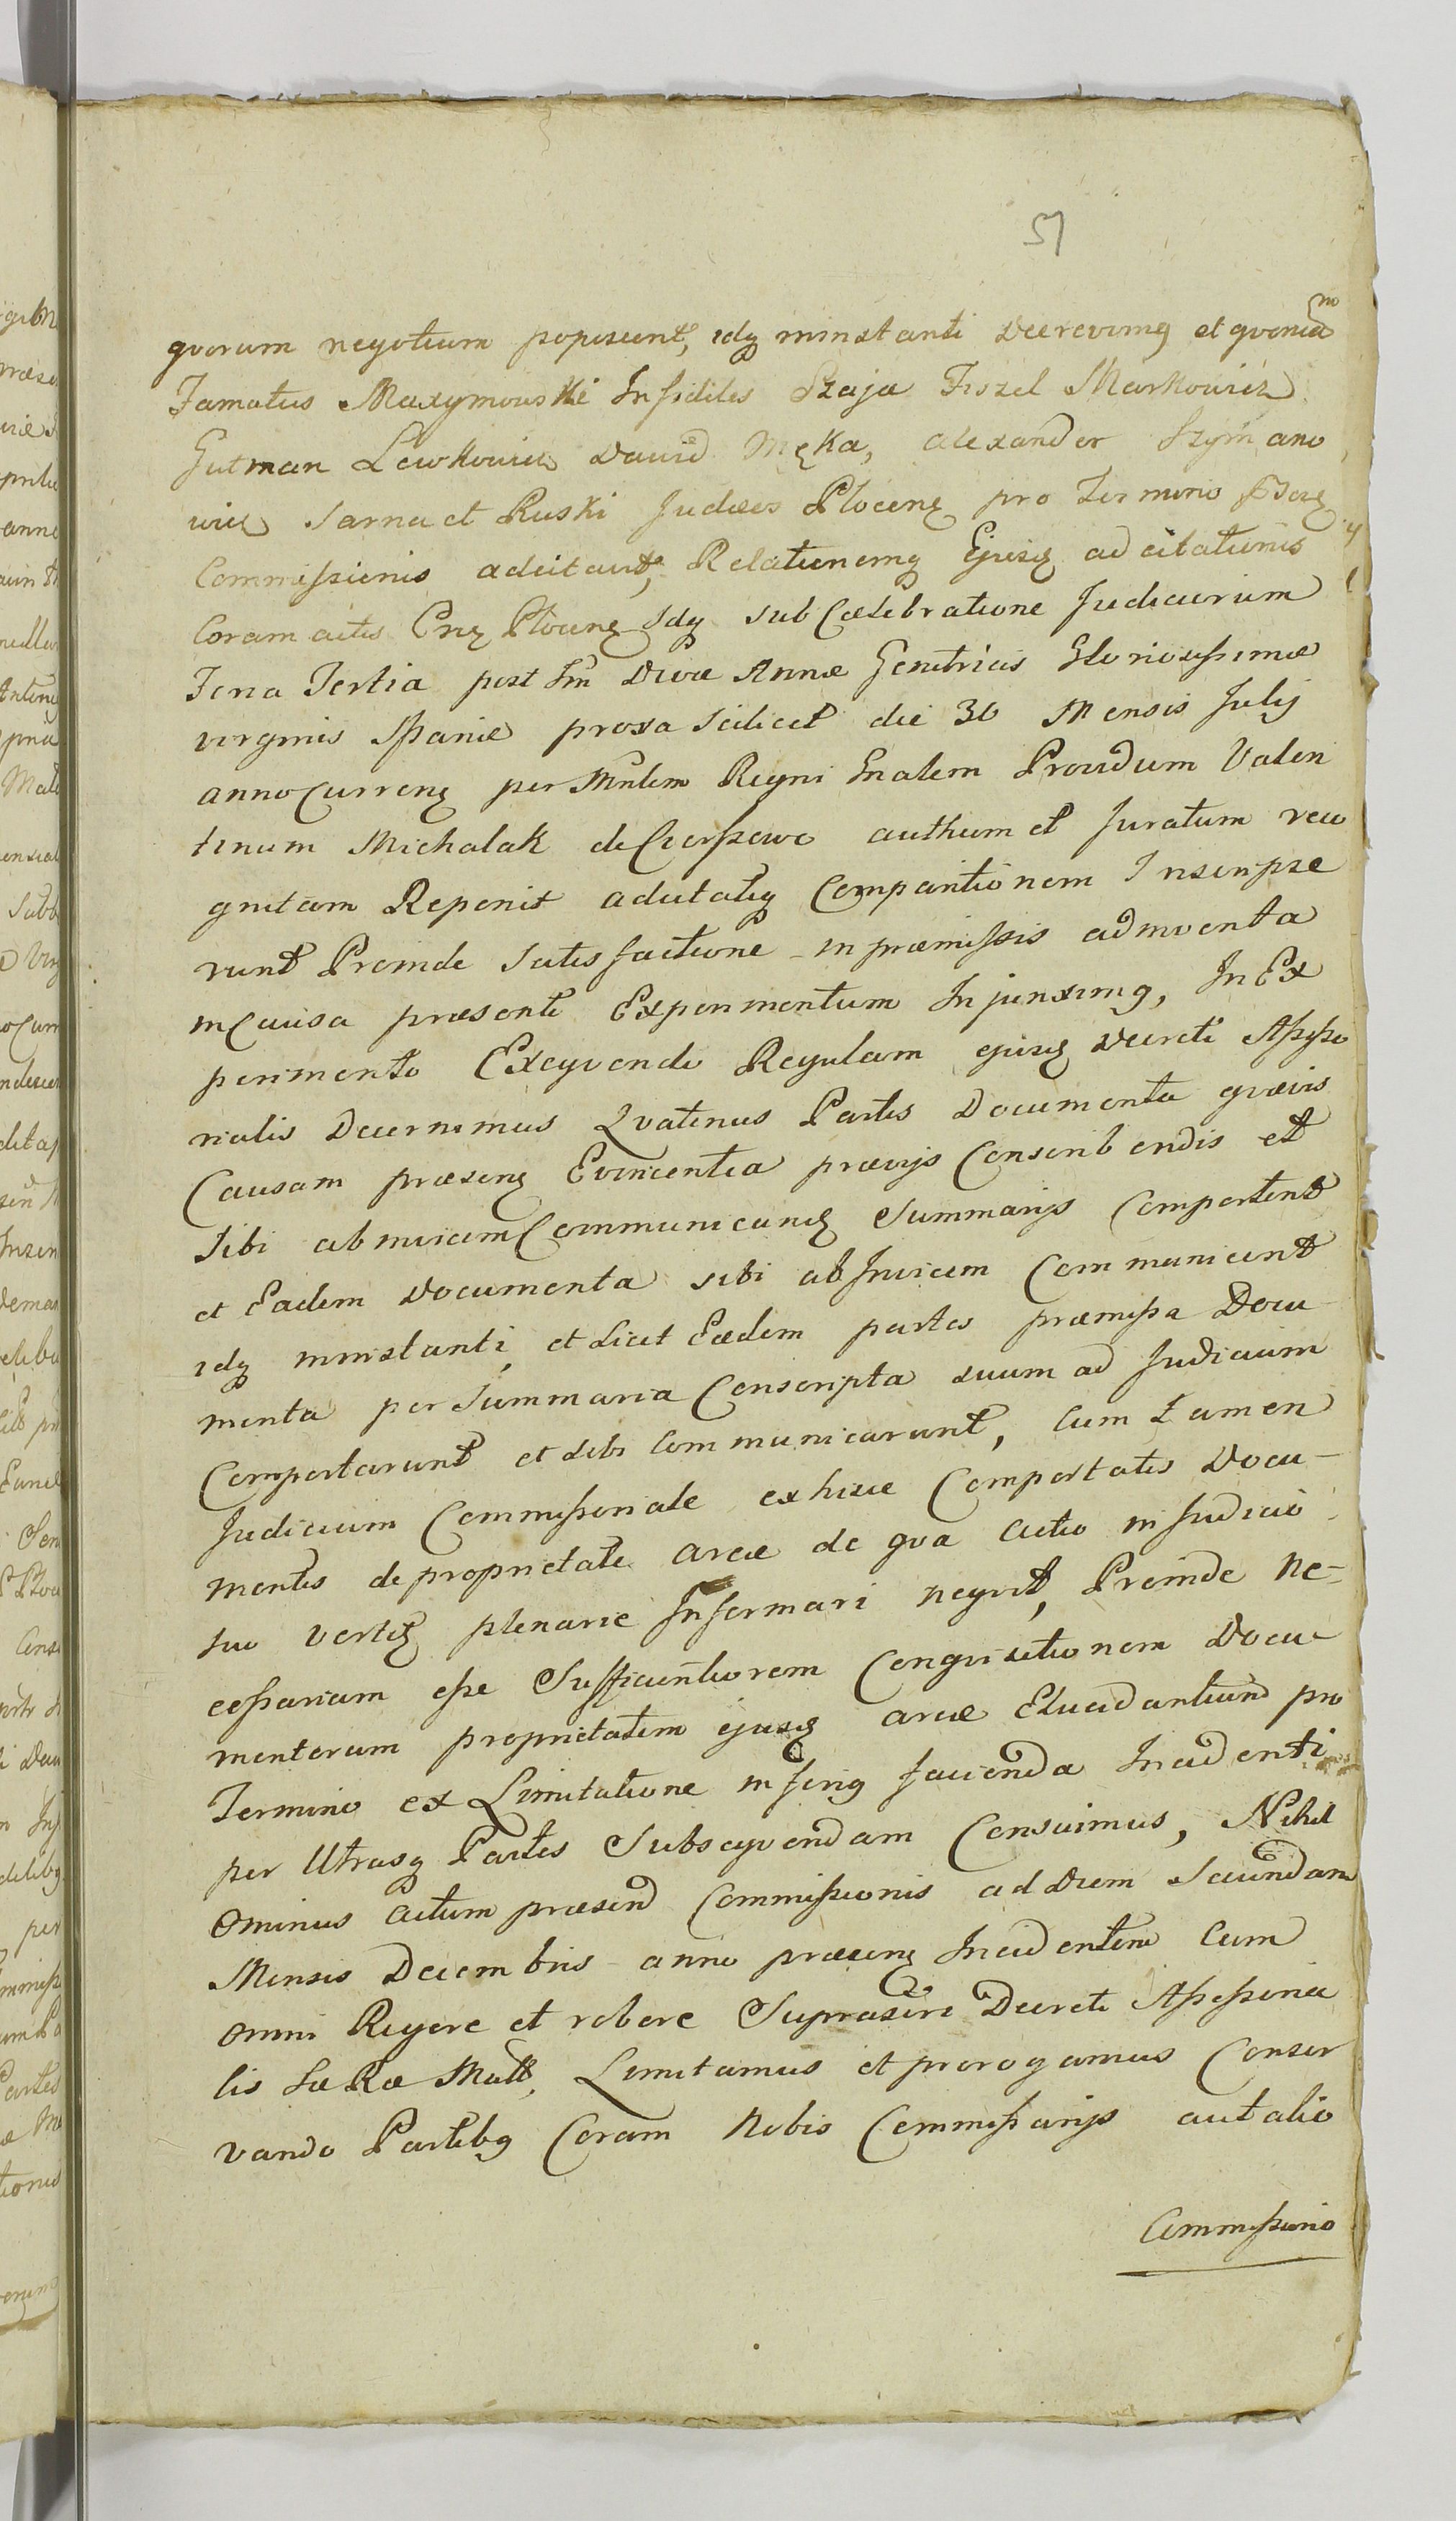 57
quorum negotium poposcunt, idq minstanti Decrevimq et quoniam
Famatus Maxymowski Infideles Szaja Fiszel Markowicz
Gutman Lewkowicz David Męka, alexander Szymano
wicz Sarna et Ruski Judaeos Plocens pro Termino
Commissionis adcitavit, Relationemq Ejusd adcitationis
Coram actis Plocens Idq sub Caelebratione Judiciorum
Feria Tertia post Divae Annae Genitricis Gloriosissimae
virginis Mariae proxa scilicet die 30 Mensis Julij
anno Curren per Mnlem Regni Gnalem Providum Valen
tinum Michalak de authum et Juratum reco
gnitam Reponit adcitatiq Comparitionem Inscripse
runt Proinde satisfactione in praemissis adinventa
in Causa praesenti Experimentum Injunximq, In Ex
perimento Exequendo Regulam ejusd Decreti Assesso
rialis Decernimus Quatenus Partes Documenta quaevis
Causam praesen Evincentia praevijs Conscribendis et
sibi ab invicem Communicand Summarijs Comportent
et Eadem Documenta sibi ab Invicem Communicent
idq minstanti, et licet Eaedem partes praemissa Docu
menta per Summaria Conscripta suum ad Judicium
Comportarunt et sibi Communicarunt, Cum tamen
Judicium Commissoriale ex hisce Comportatis Docu-
mentis de proprietate areae de qua actio in Judicio
suo vertit plenarie Informari nequit, Proinde ne-
cessariam esse Sufficientiorem Conquisitionem Docu-
mentorum proprietatem ejusd areae Elucidantium pro
Termino ex Limitatione inferiq facienda Incidenti
per Utrasq Partes Subsequendam Censuimus, Nihil
ominus actum praesen Commissionis ad Diem Secundam
Mensis Decembris anno praesen Incidentem Cum
omni Rigore et robore Suprascri Decreti Assessoria
lis Sae Rae Matt, Limitamus et prorogamus Conser
vando Partibq Coram Nobis Commissarijs aut alio
Commissario